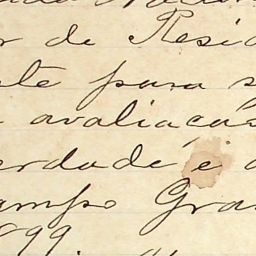 r de Resid
te para s
avaliaças
erdade, é a
ampo Gra
899